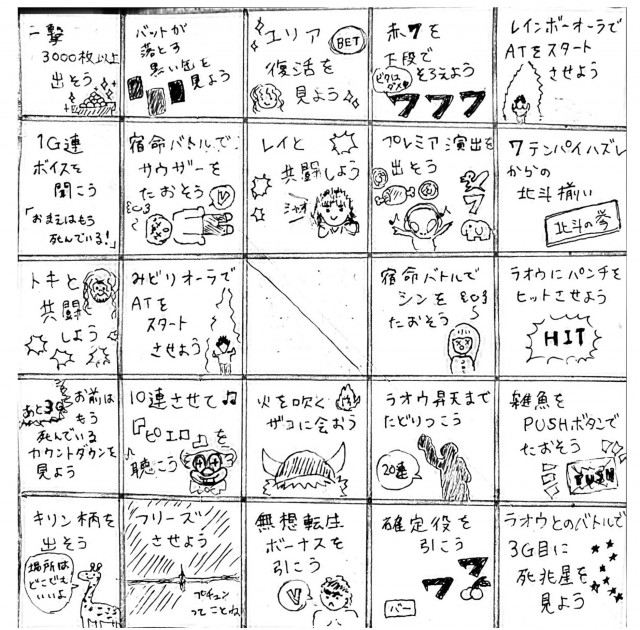 一撃
3000枚以上
出そう
バットが
落とす
黒い包を
見よう
エリア
BET
復活を
見よう
赤7を
下段で
そろえよう
ビタは
ダメ
777
レインボーオーラで
ATをスタート
させよう
1G連
ボイスを
聞こう
「おまえはもう
死んでいる!」
宿命バトルで
サウザーを
たおそう
レイと
共闘しよう
シャオ
プレミア演出を
出そう
7
7テンパイハズレ
からの
北斗揃い
北斗の拳
トキと
共闘
しよう
みどりオーラで
ATを
スタート
させよう
宿命バトルで
シンを
たおそう
ラオウにパンチを
ヒットさせよう
HIT
あと30
お前は
もう
死んでいる
カウントダウンを
見よう
10連させて♫
『ピエロ』を
聴こう
火を吹く
ザコに会おう
ラオウ昇天まで
たどりつこう
20連
雑魚を
PUSHボタンで
たおそう
PUSH
キリン柄を
出そう
場所は
どこでも
いいよ
フリーズ
させよう
プチュン
ってことね
無想転生
ボーナスを
引こう
V
確定役を
引こう
77
バー
ラオウとのバトルで
3G目に
死兆星を
見よう